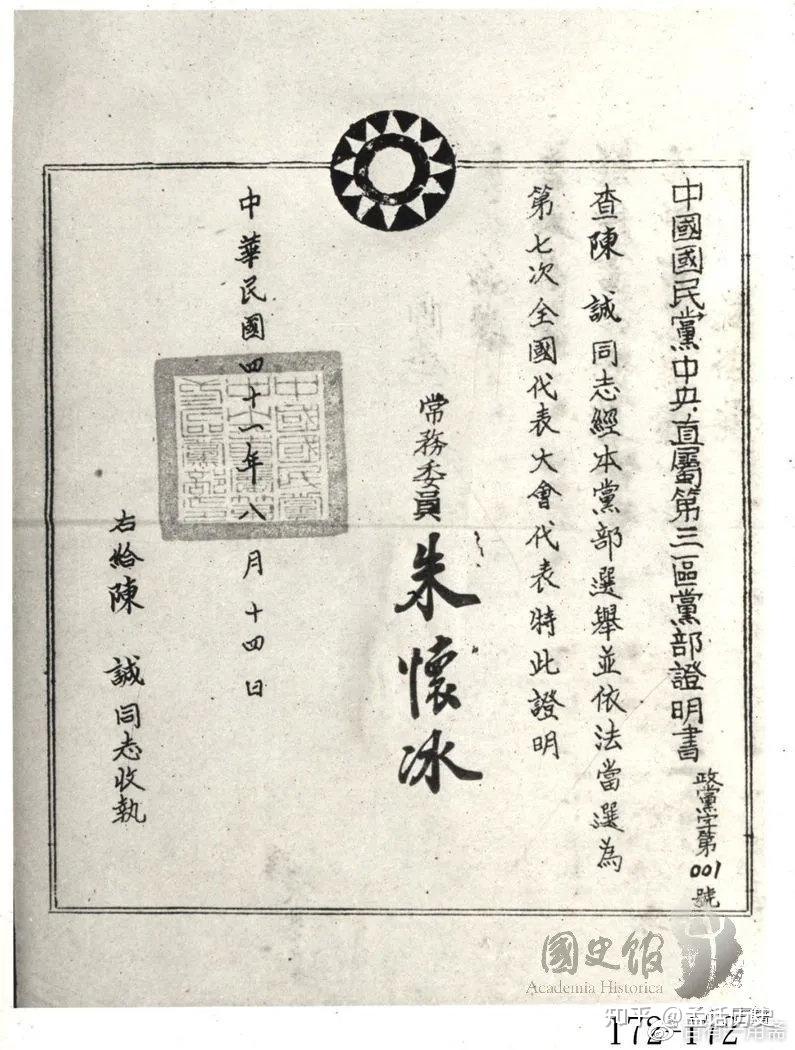 中國國民黨中央直屬第三區黨部證明書
政黨字第001號
查陳 誠同志經本黨部選舉並依法當選為
第七次全國代表大會代表特此證明
常務委員 朱懷冰
中華民國四十一年八月十四日
中國國民黨
右給陳 誠同志收執
國史館
Academia Historica
知乎